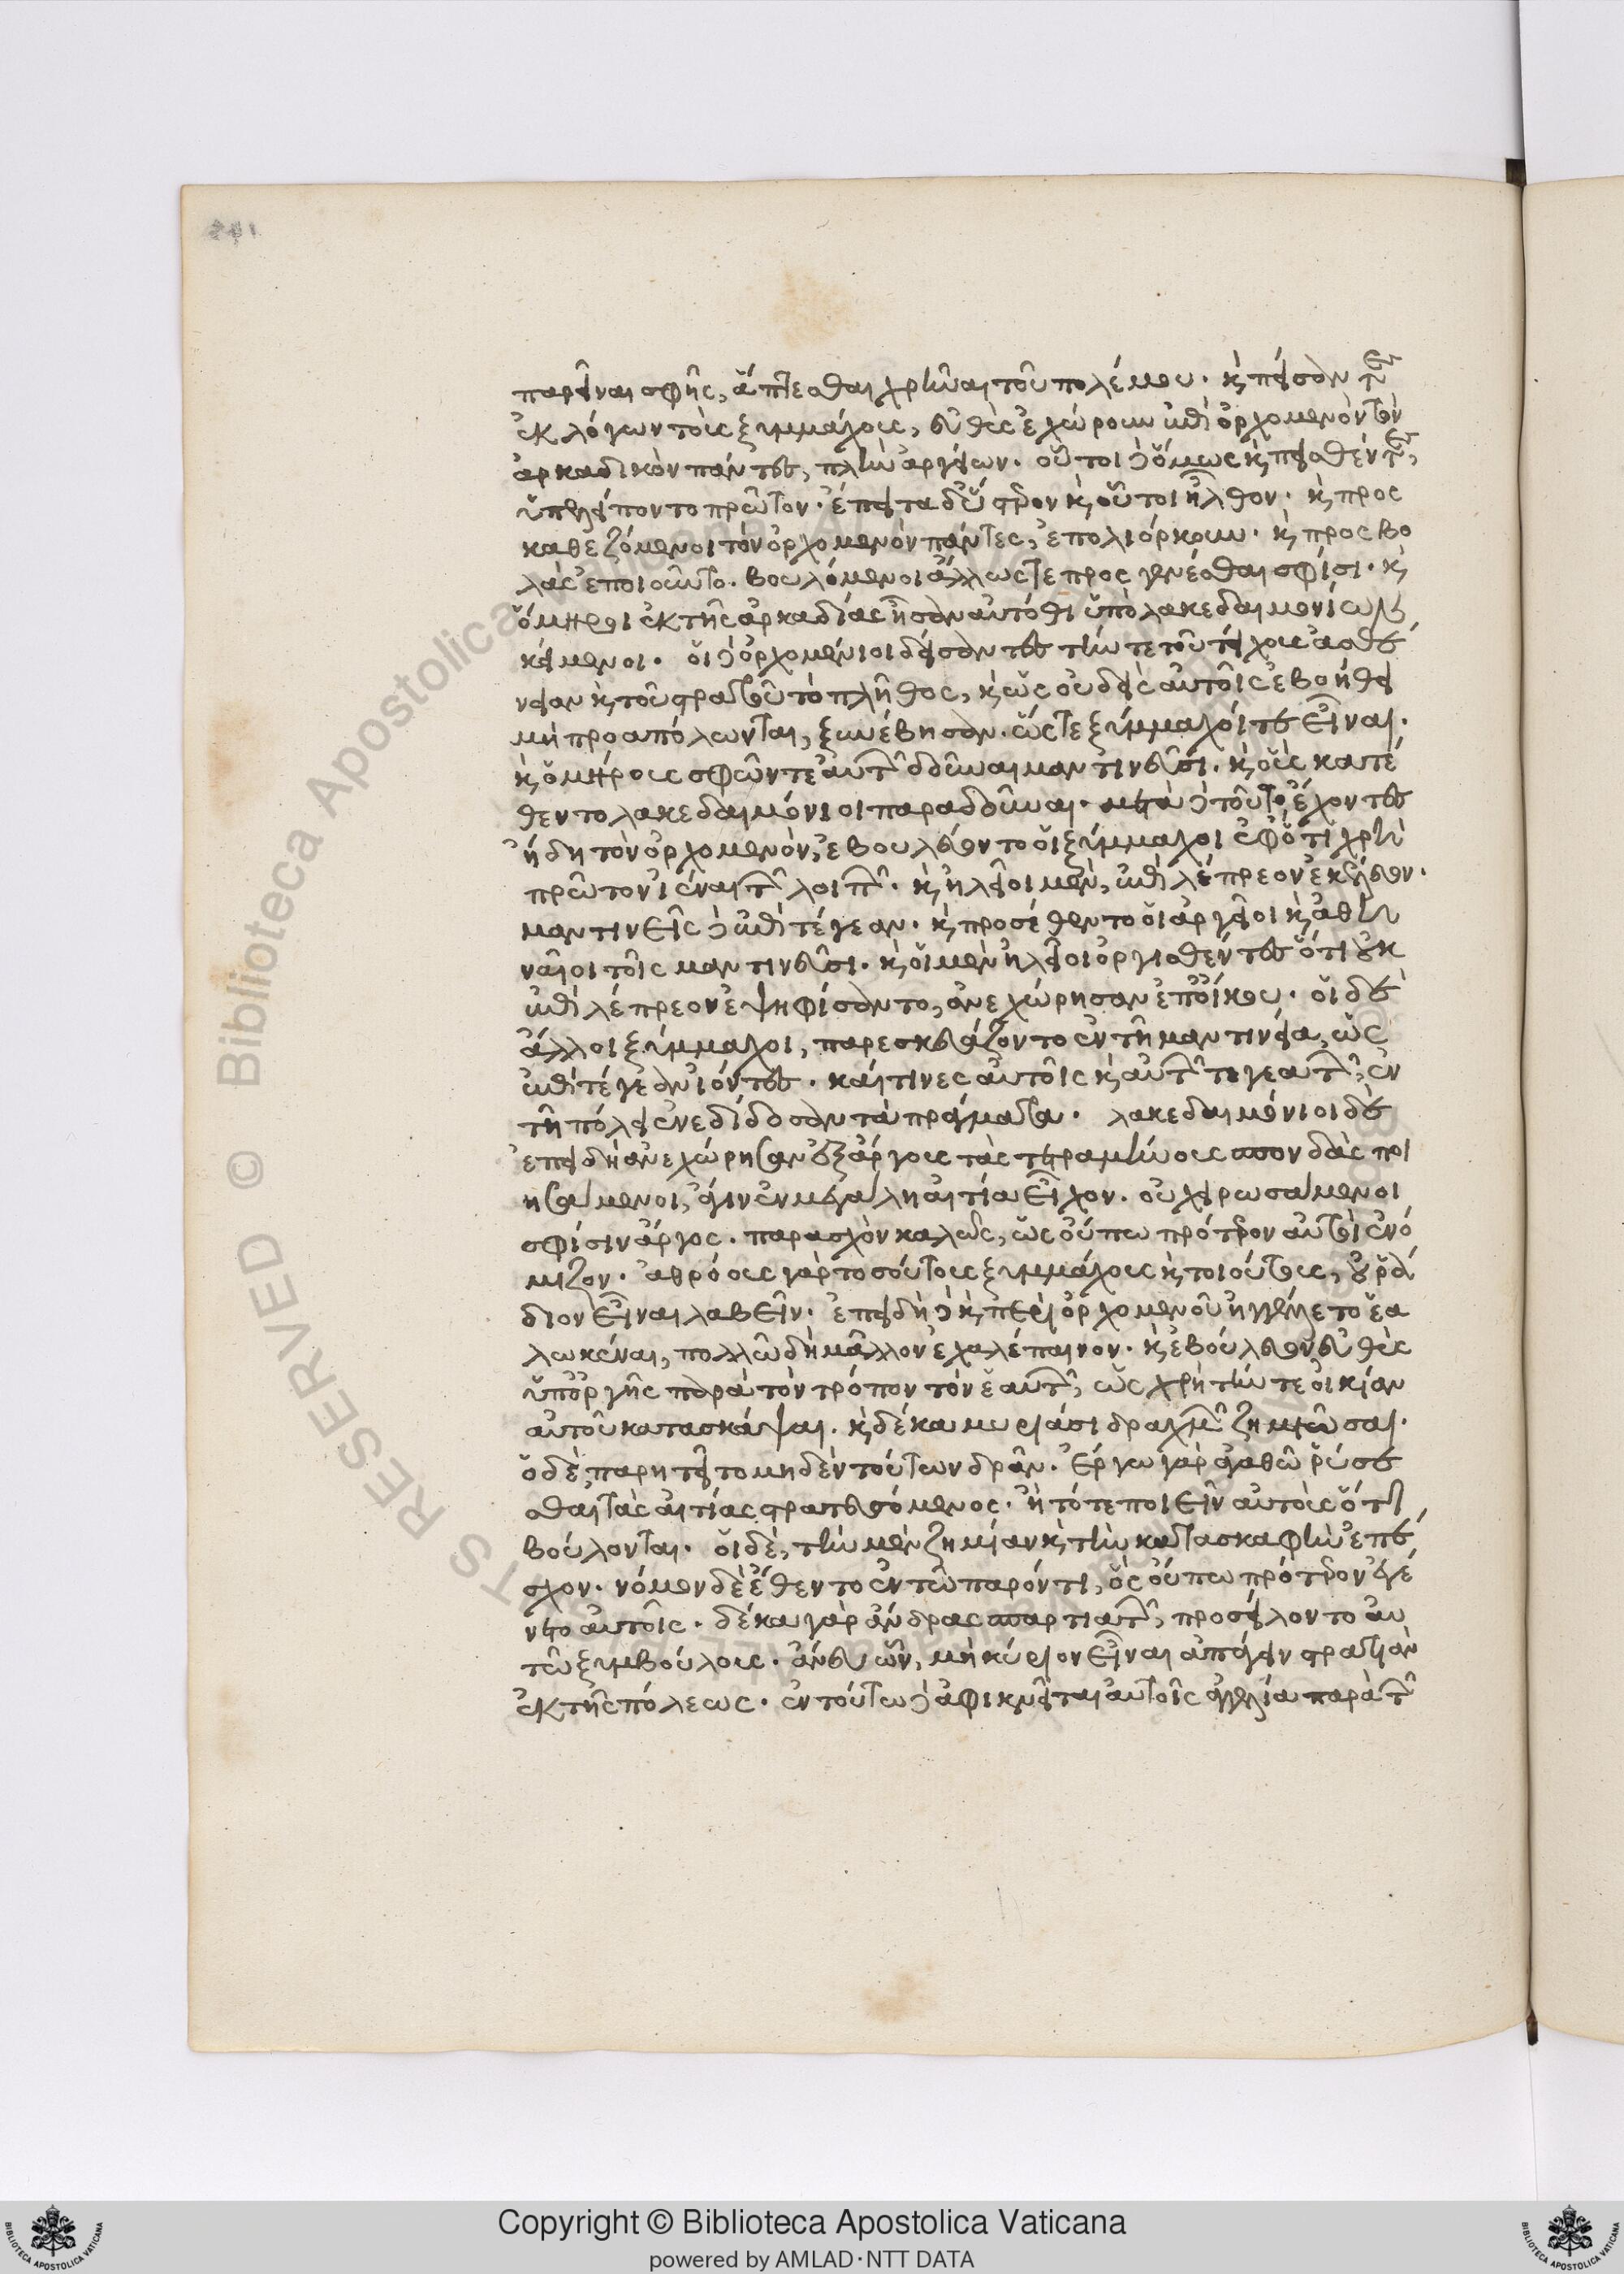 παρεῖναι σφεῖς, ἅπτεσθαι χρῆναι τοῦ πολέμου. καὶ πείσαντες
ἐκ λόγων τοὺς ξυμμάχους, εὐθὺς ἐχώρουν ἐπὶ ὀρχομενὸν τὸν
ἀρκαδικὸν πάντες, πλὴν ἀργείων. οὗτοι δὲ ὅμως καὶ πεισθέντες,
ὑπελείποντο πρῶτον. ἔπειτα δ' ὕστερον καὶ οὗτοι ἦλθον. καὶ προς
καθεζόμενοι τὸν ὀρχομενὸν πάντες, ἐπολιόρκουν. καὶ προσβο
λὰς ἐποιοῦντο. βουλόμενοι ἄλλως τε προσγενέσθαι σφίσι. καὶ
ὅμηροι ἐκ τῆς ἀρκαδίας ἦσαν αὐτόθι ὑπὸ λακεδαιμονίων
κείμενοι. οἱ δὲ ὀρχομένιοι δείσαντες τήν τε τοῦ τείχους ἀσθέ
νειαν καὶ τοῦ στρατοῦ τὸ πλῆθος, καὶ ὡς οὐδεὶς αὐτοῖς ἐβοήθει
μὴ προαπόλωνται, ξυνέβησαν. ὥστε ξύμμαχοί τε εἶναι.
καὶ ὁμήρους σφῶν τε αὐτῶν δοῦναι μαντινεῦσι. καὶ οὓς κατέ
θεντο λακεδαιμόνιοι παραδοῦναι. μετὰ δὲ τοῦτο, ἔχοντες
ἤδη τὸν ὀρχομενὸν, ἐβουλεύοντο οἱ ξύμμαχοι ἐφ' ὅ τι χρὴ
πρῶτον ἰέναι τῶν λοιπῶν. καὶ ἠλεῖοι μὲν, ἐπὶ λέπρεον ἐκέλευον.
μαντινεῖς δὲ ἐπὶ τέγεαν. καὶ προσέθεντο οἱ ἀργεῖοι καὶ ἀθη
ναῖοι τοῖς μαντινεῦσι. καὶ οἱ μὲν ἠλεῖοι ὀργισθέντες ὅτι οὐκ
ἐπὶ λέπρεον ἐψηφίσαντο, ἀνεχώρησαν ἐπ' οἴκου. οἱ δὲ
ἄλλοι ξύμμαχοι, παρεσκευάζοντο ἐν τῇ μαντινείᾳ, ὡς
ἐπὶ τέγεαν ἰόντες. καί τινες αὐτοῖς καὶ αὐτῶν τεγεατῶν, ἐν
τῇ πόλει ἐνεδίδοσαν τὰ πράγματα. λακεδαιμόνιοι δὲ
ἐπειδὴ ἀνεχώρησαν ἐξ ἄργους τὰς τετραμήνους σπονδὰς ποι
ησάμενοι, ἆγιν ἐν μεγάλῃ αἰτίᾳ εἶχον. οὐ χειρωσάμενοι
σφίσιν ἄργος. παρασχὸν καλῶς, ὡς οὔπω πρότερον αὐτοὶ ἐνό
μιζον. ἀθρόους γὰρ τοσούτους ξυμμάχους καὶ τοιούτους, οὐ ῥᾴ
διον εἶναι λαβεῖν. ἐπειδὴ δὲ καὶ περὶ ὀρχομενοῦ ἠγγέλλετο ἑα
λωκέναι, πολλῷ δὴ μᾶλλον ἐχαλέπαινον. καὶ ἐβούλευον εὐθὺς
ὑπ' ὀργῆς παρὰ τὸν τρόπον τὸν ἑαυτῶν, ὡς χρὴ τήν τε οἰκίαν
αὐτοῦ κατασκάψαι. καὶ δέκα μυριάσι δραχμῶν ζημιῶσαι.
ὁ δὲ, παρῃτεῖτο μηδὲν τούτων δρᾶν. ἔργῳ γὰρ ἀγαθῷ ῥύσε
σθαι τὰς αἰτίας στρατευσόμενος. ἢ τότε ποιεῖν αὐτοὺς ὅ τι
βούλονται. οἱ δὲ, τὴν μὲν ζημίαν καὶ τὴν κατασκαφὴν ἐπέ
σχον. νόμον δὲ ἔθεντο ἐν τῷ παρόντι, ὃς οὔπω πρότερον ἐγέ
νετο αὐτοῖς. δέκα γὰρ ἄνδρας σπαρτιατῶν, προσείλοντο αυ
τῷ ξυμβούλους. ἄνευ ὧν, μὴ κύριον εἶναι ἀπάγειν στρατιὰν
ἐκ τῆς πόλεως. ἐν τούτῳ δὲ ἀφικνεῖται αὐτοῖς ἀγγελία παρὰ τῶν
Copyright © Biblioteca Apostolica Vaticana
powered by AMLAD·NTT DATA